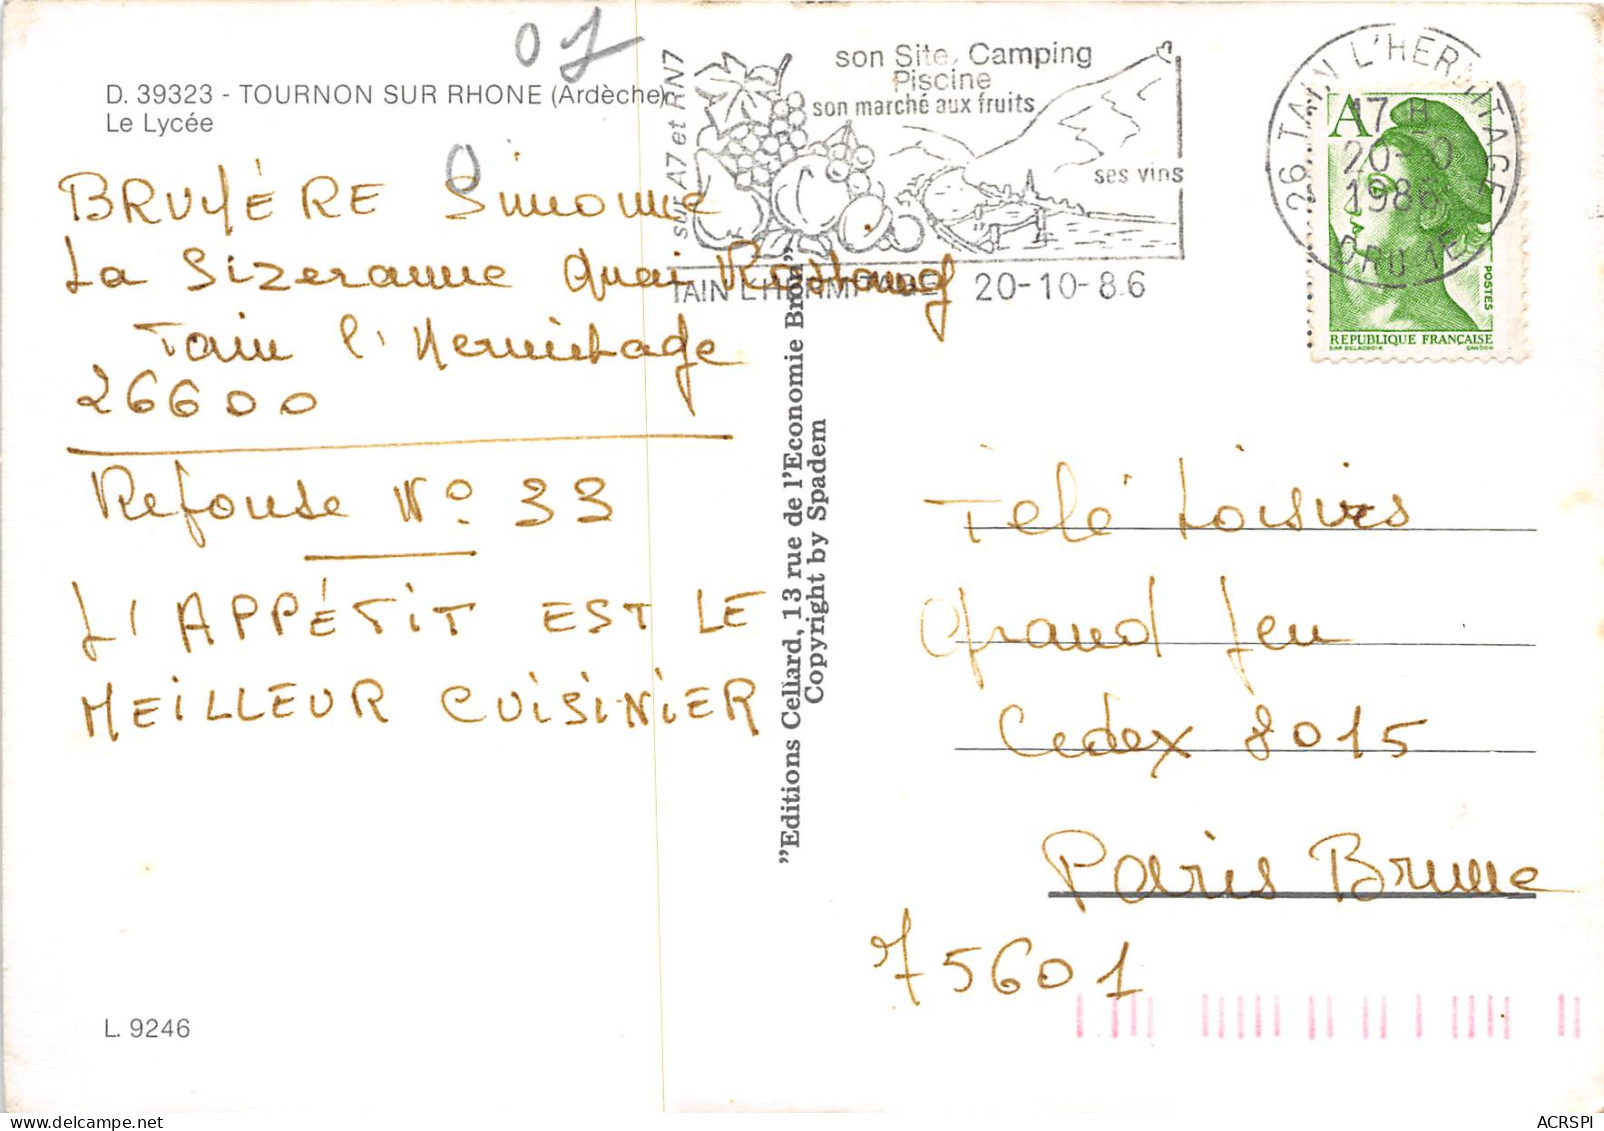 01
D. 39323 - TOURNON SUR RHONE (Ardèche)
Le Lycée
sur A7 et RN7
son Site, Camping
Piscine
son marché aux fruits
ses vins
TAIN L'HERMITAGE 20-10-86
26 TAIN L'HERMITAGE
17 H
20-10
1986
DROME
A
POSTES
REPUBLIQUE FRANÇAISE
BRUYÉRE Simone
La Sizeranne Quai Rostaing
Tain l'Hermitage
26600
Réponse N° 33
L'APPÉTIT EST LE
MEILLEUR CUISINIER
"Editions Cellard, 13 rue de l'Economie Bron"
Copyright by Spadem
Télé Loisirs
Grand Jeu
Cedex 8015
Paris Brune
75601
L. 9246
ACRSPI